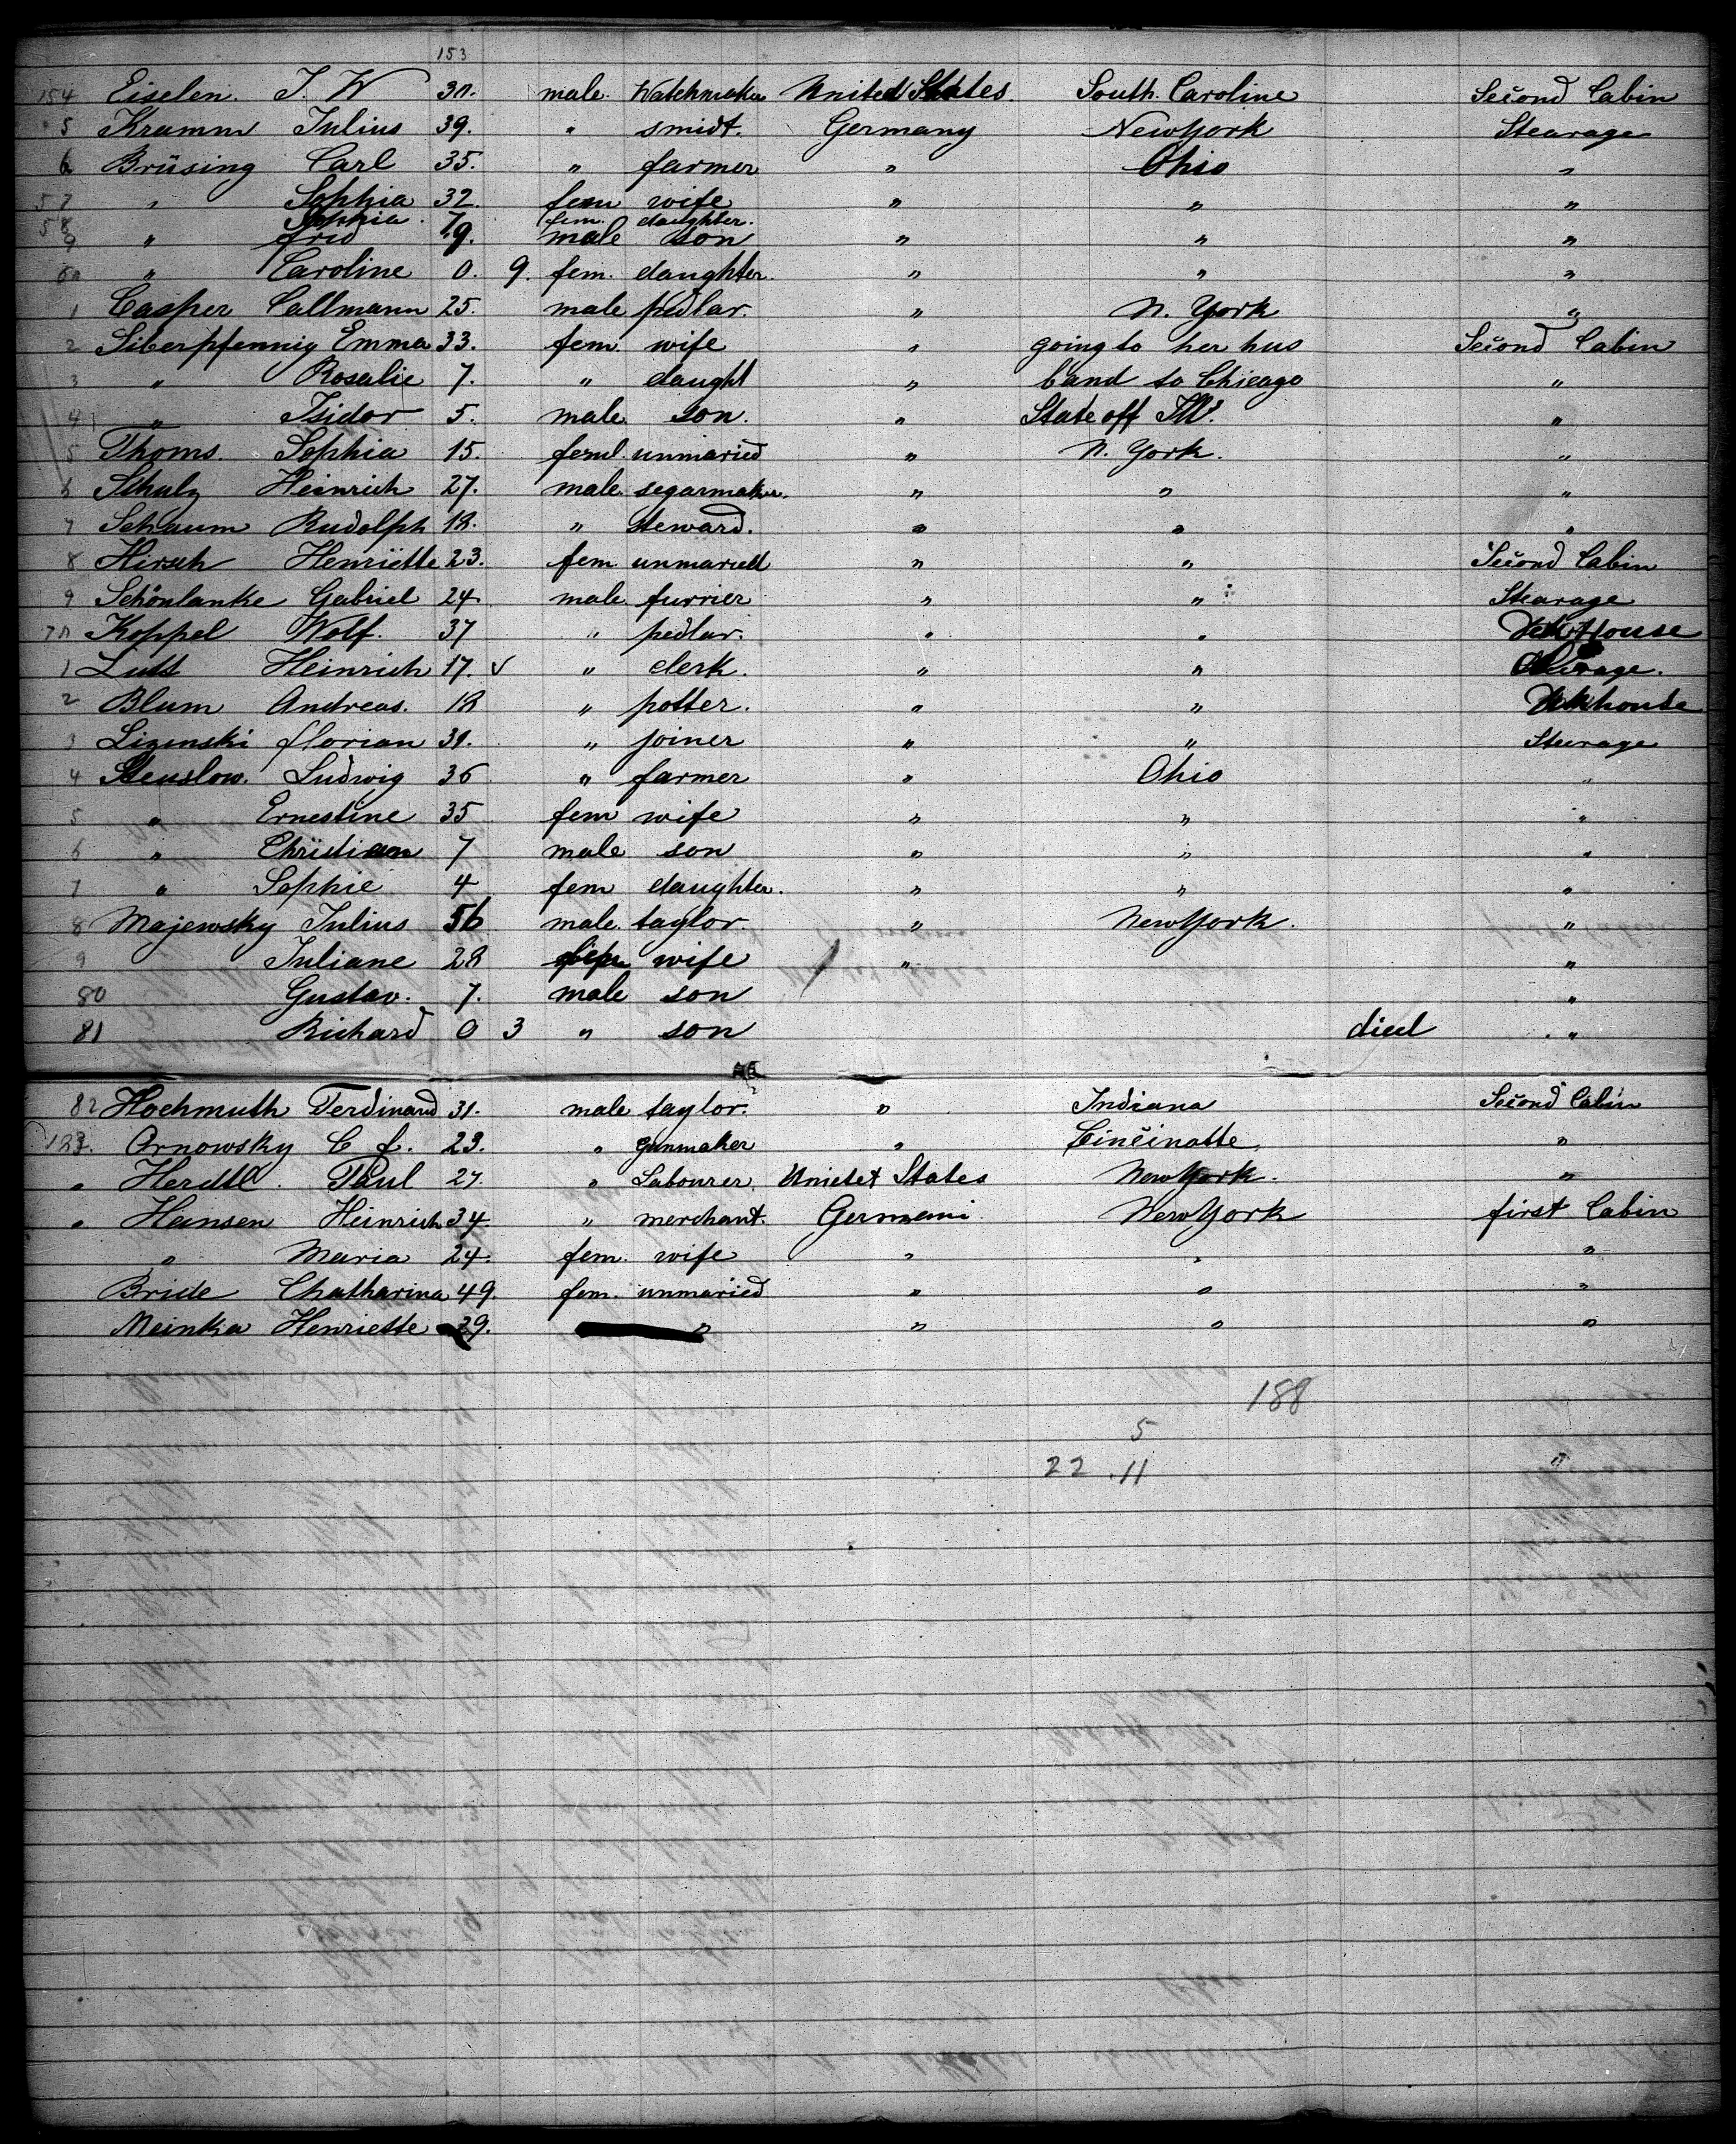 153
154 Eiselen. J. W 30. male. Watchmaker United States. South. Caroline Second Cabin
5 Kramm Julius 39. " smidt. Germany NewYork Stearage
6 Brüsing Carl 35. " farmer " Ohio "
57 " Sophia 32. fem wife " " "
58 Sophia. 7. fem. daughter.
9 " fred 9. male son " " "
60 " Caroline 0. 9. fem. daughter. " " "
1 Casper Callmann 25. male pedlar. " N. York "
2 Siberpfennig Emma 33. fem. wife " going to her hus Second Cabin
3 " Rosalie 7. " daught " band to Chicago "
4 " Isidor 5. male son. " State off Ill. "
5 Thoms. Sophia 15. feml. unmaried " N. York. "
6 Schulz Heinrich 27. male. segarmaker. " " "
7 Schaum Rudolph 18. " steward. " " "
8 Hirsch Henriette 23. fem. unmaried " " Second Cabin
9 Schönlanke Gabriel 24. male. furrier " " Stearage
70 Koppel Wolf. 37 " pedlar. " " House
1 Heinrich 17. v " clerk. " "
2 Blum Andreas. 18 " potter. " "
3 florian 31. " joiner " " Stearage
4 Ludwig 36 " farmer " Ohio "
5 " Ernestine 35 fem wife " " "
6 " Christian 7 male son " " "
7 " Sophie 4 fem daughter. " " "
8 Majewsky Julius 56 male. taylor. " NewYork. "
9 Juliane 28 fem wife " "
80 Gustav. 7. male son "
81 Richard 0 3 " son died "
82 Hochmuth Ferdinand 31. male taylor. " Indiana Second Cabin
183. Ornowsky C f. 23. " gunmaker " Cincinatte. "
" Paul 27. " Labourer. Unietet States NewYork. "
" Hansen Heinrich 34. " merchant. Germani NewYork first Cabin
" Maria 24. fem. wife " " "
Bride Chatharina 49. fem. unmaried " " "
Meinka Henriette 39. " " " "
188
5
22 . 11 "